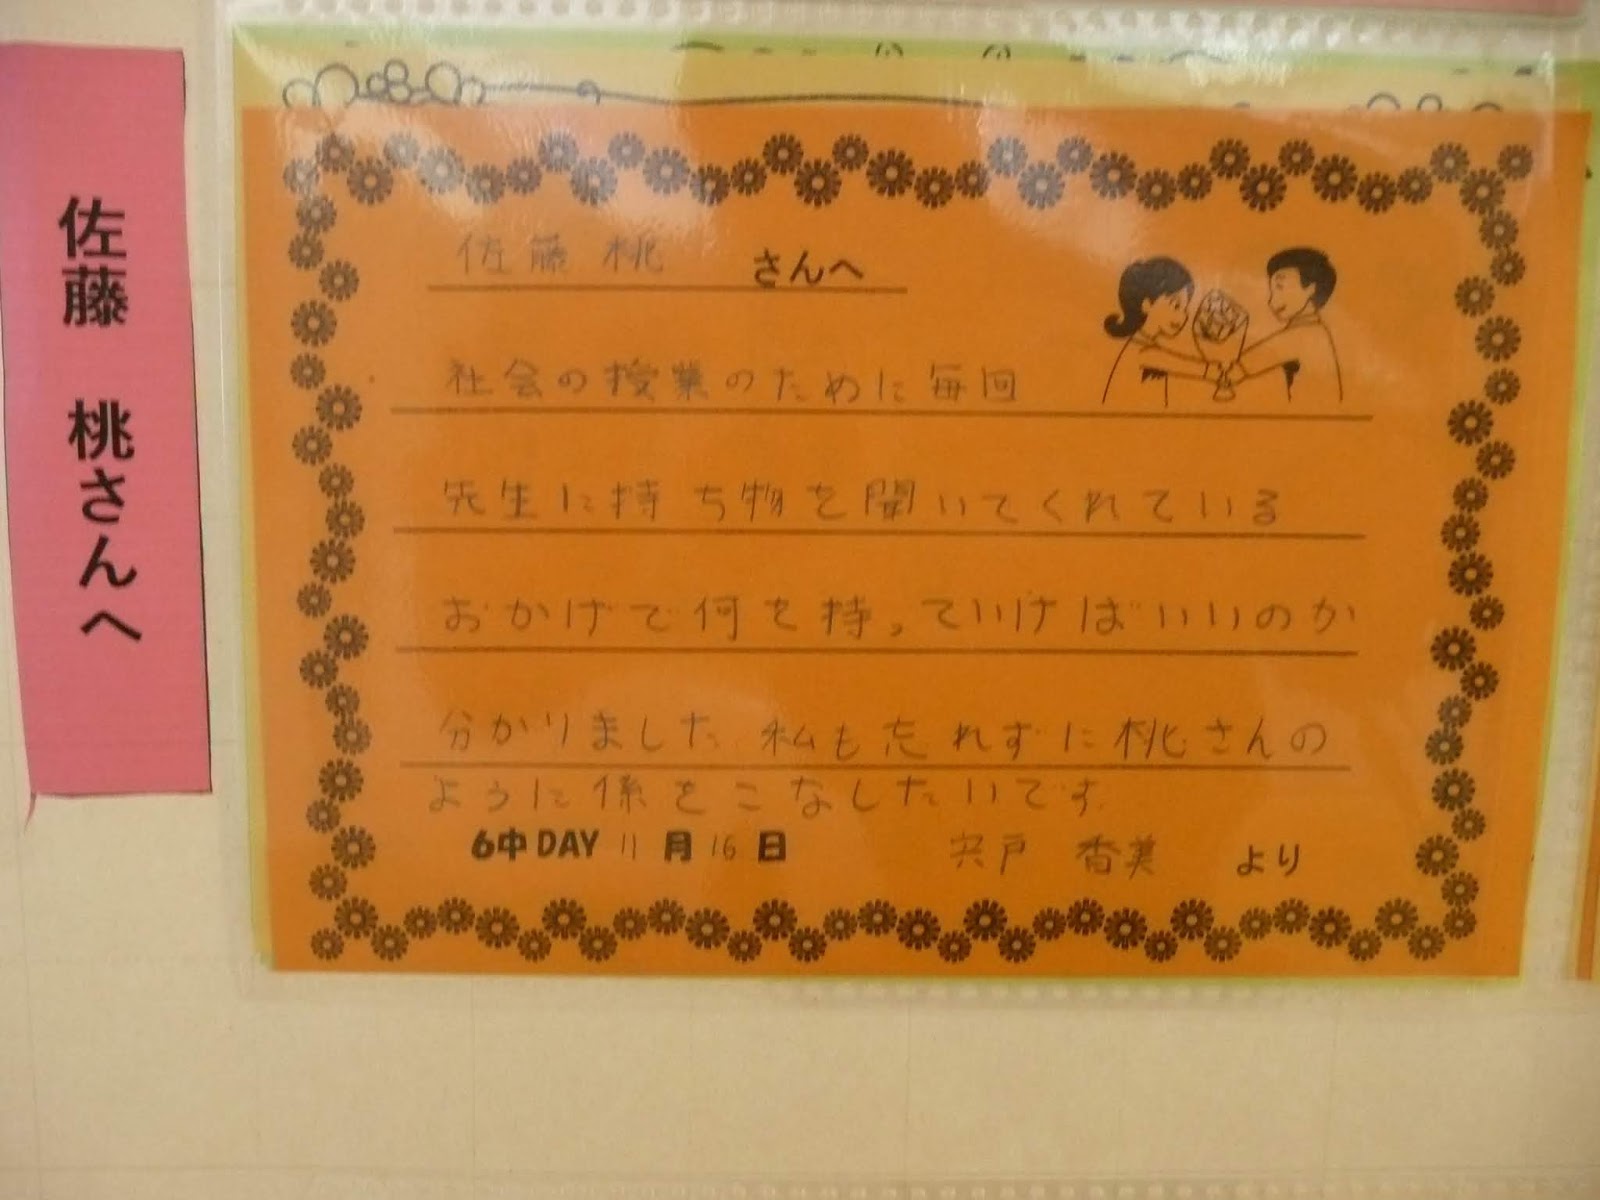 佐藤 桃さんへ
佐藤 桃 さんへ
社会の授業のために毎回
先生に持ち物を聞いてくれている
おかげで何を持っていけばいいのか
分かりました 私も忘れずに桃さんの
ように係をこなしたいです
6中DAY 11月16日
宍戸 香美 より